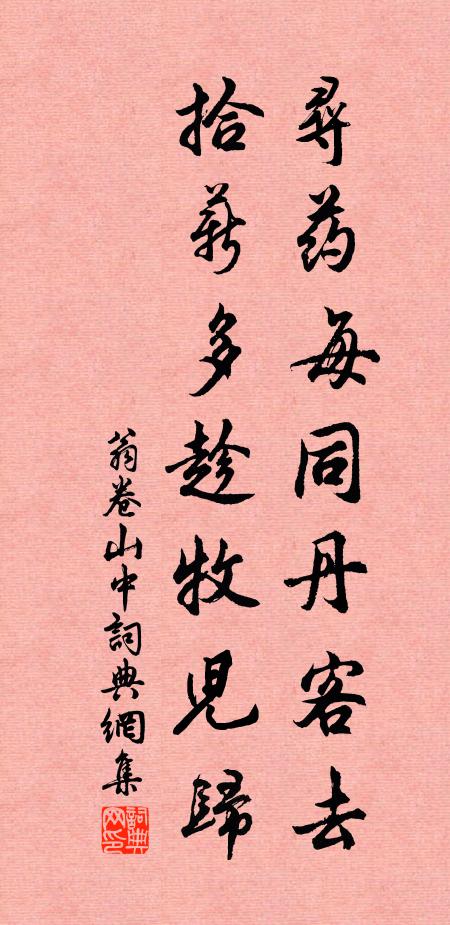 尋药每同丹客去
拾薪多趁牧児歸
翁卷山中詞典網集
詞典网印